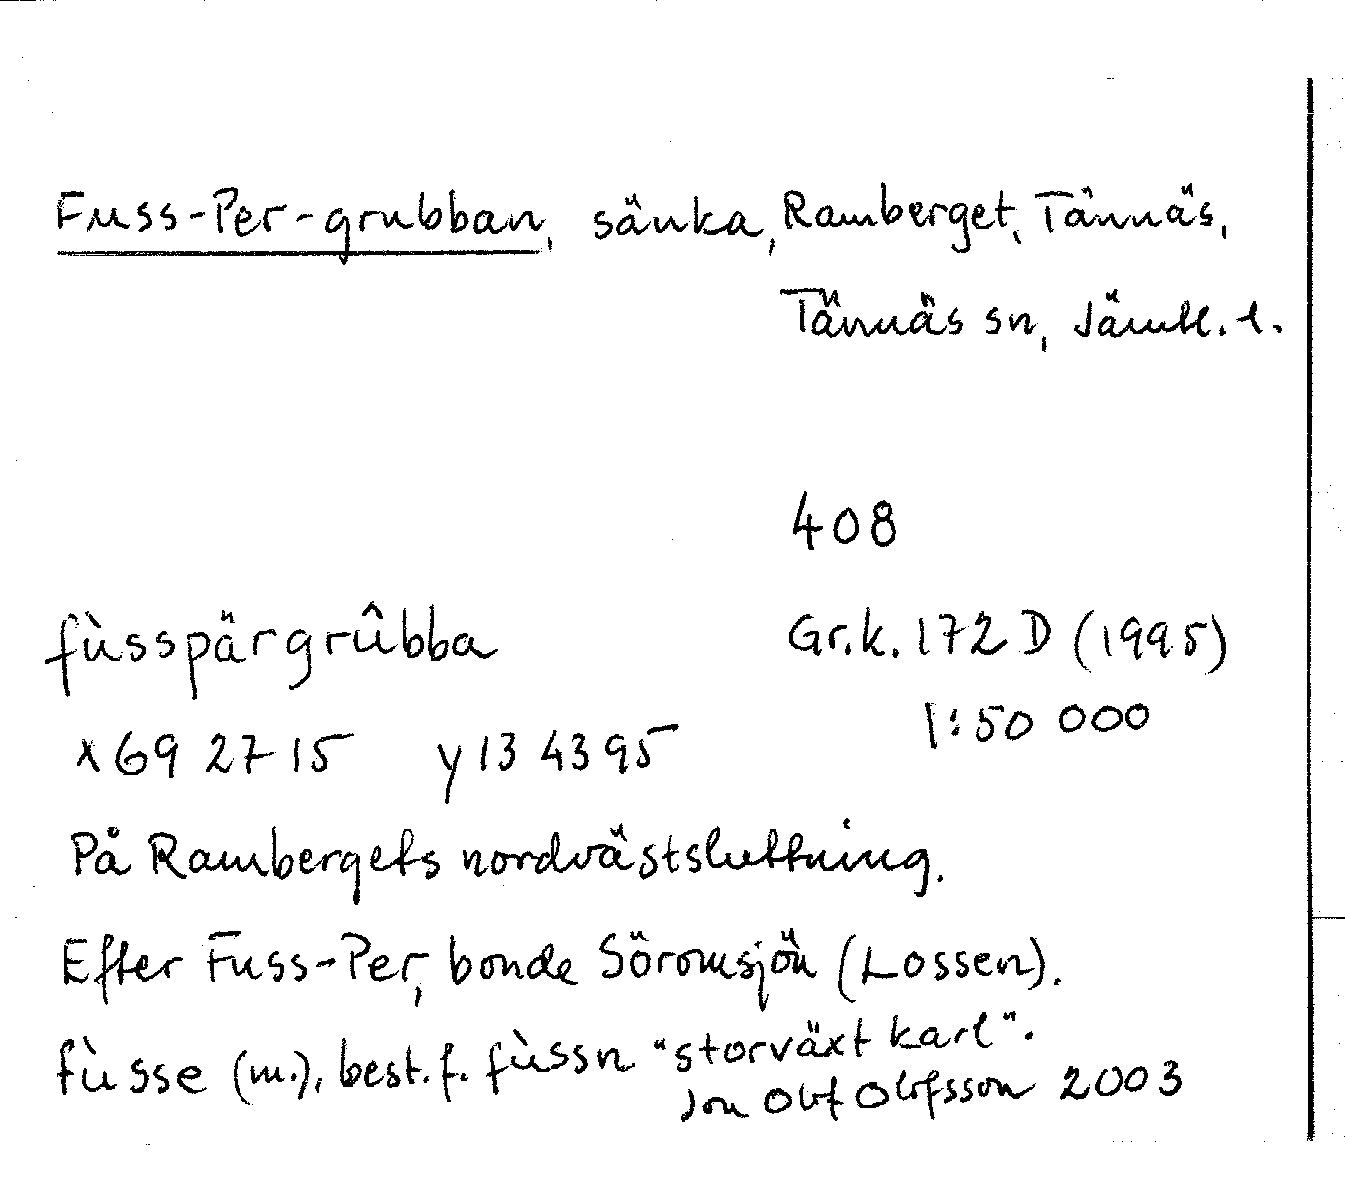 Fuss-Per-grubban, sänka, Ramberget, Tännäs,
Tännäs sn, Jämtl. l.
408
fùsspärgrûbba
Gr.k. 172 D (1995)
1:50 000
x 69 27 15 y 13 43 95
På Rambergets nordvästsluttning.
Efter Fuss-Per, bonde Söromsjön (Lossen).
fùsse (m.), best. f. fùssn "storväxt karl".
Jon Olof Olofsson 2003